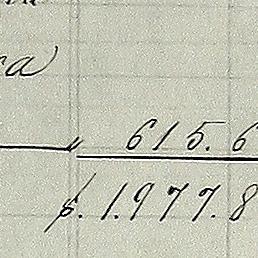 ca
" 615.6
$.1.977.8